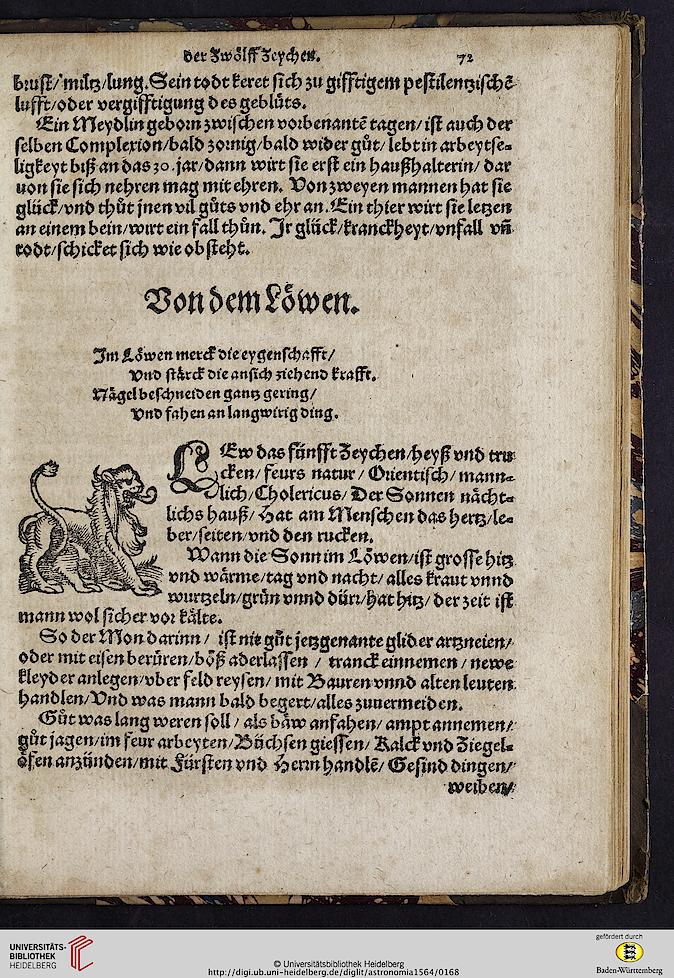 der Zwölff Zeychen.
72
brust/ miltz/lung. Sein todt keret sich zu gifftigem pestilentzischē
lufft/oder vergifftigung des geblüts.
Ein Meydlin geborn zwischen vorbenantē tagen/ ist auch der
selben Complexion/bald zornig/bald wider gůt/ lebt in arbeytse-
ligkeyt biß an das 30. jar/dann wirt sie erst ein haußhalterin/ dar
uon sie sich nehren mag mit ehren. Von zweyen mannen hat sie
glück/vnd thůt jnen vil gůts vnd ehr an. Ein thier wirt sie letzen
an einem bein/wirt ein fall thůn. Jr glück/kranckheyt/vnfall vñ
todt/schicket sich wie ob steht.
Von dem Löwen.
Im Löwen merck die eygenschafft/
Vnd stärck die an sich ziehend krafft.
Nägel beschneiden gantz gering/
Vnd fahen an langwirig ding.
LEw das fünfft Zeychen/heyß vnd tru-
cken/ feurs natur/ Orientisch/ mann-
lich/Cholericus/ Der Sonnen nächt-
lichs hauß/ Hat am Menschen das hertz/le-
ber/seiten/vnd den rucken.
Wann die Sonn im Löwen/ist grosse hitz
vnd wärme/tag vnd nacht/ alles kraut vnnd
wurtzeln/grün vnnd dürr/hat hitz/ der zeit ist
mann wol sicher vor kälte.
So der Mon darinn/ ist nit gůt jetzgenante glider artzneien/
oder mit eisen berüren/böß aderlassen / tranck einnemen / newe
kleyder anlegen/vber feld reysen/ mit Bauren vnnd alten leuten
handlen/Vnd was mann bald begert/alles zuuermeiden.
Gůt was lang weren soll / als bäw anfahen/ ampt annemen/
gůt jagen/im feur arbeyten/Büchsen giessen/ Kalck vnd Ziegel-
öfen anzünden/mit Fürsten vnd Herrn handlē/ Gesind dingen/
weiben/
UNIVERSITÄTS-
BIBLIOTHEK
HEIDELBERG
© Universitätsbibliothek Heidelberg
http://digi.ub.uni-heidelberg.de/diglit/astronomia1564/0168
gefördert durch
Baden-Württemberg